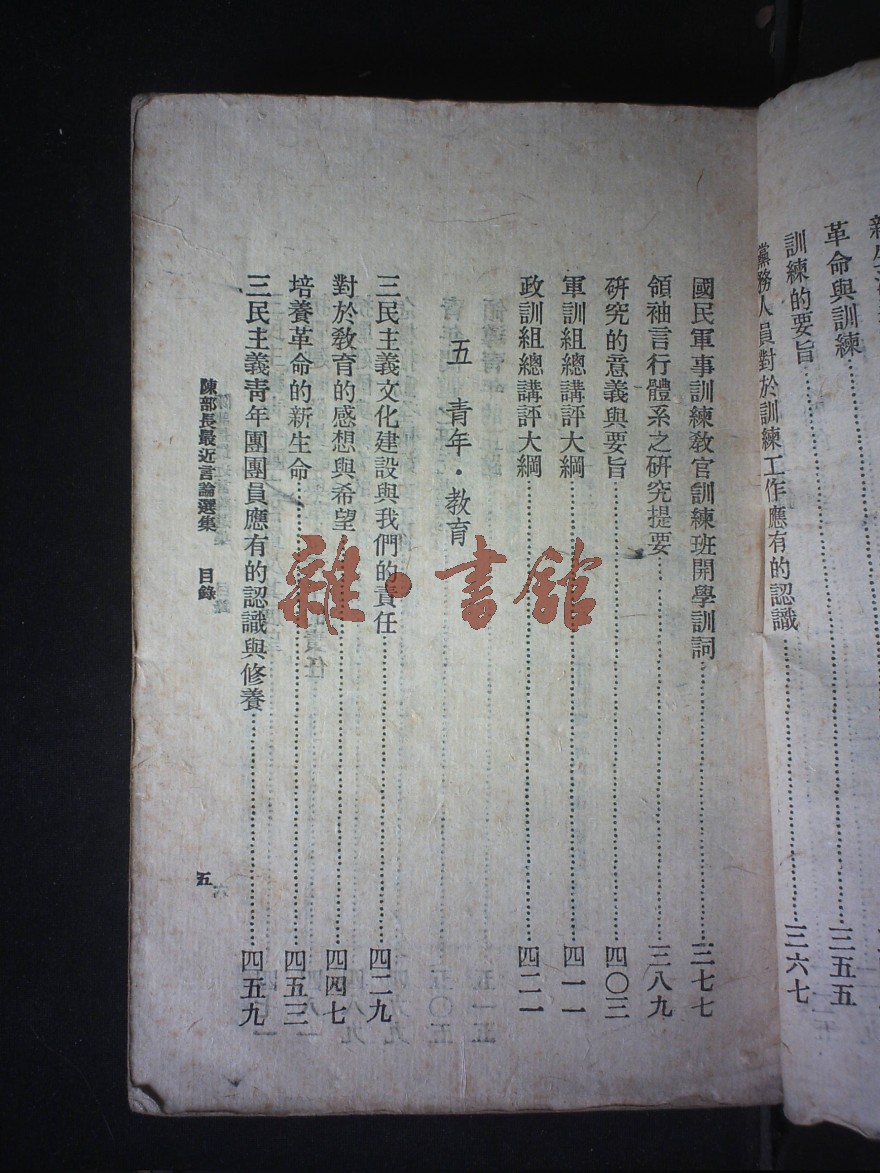 革命與訓練……三五五
訓練的要旨
黨務人員對於訓練工作應有的認識……三六七
國民軍事訓練教官訓練班開學訓詞……三七七
領袖言行體系之研究提要……三八九
研究的意義與要旨……四〇三
軍訓組總講評大綱……四一一
政訓組總講評大綱……四二一
五 青年·教育
三民主義文化建設與我們的責任……四二九
對於教育的感想與希望……四四七
培養革命的新生命……四五三
三民主義青年團團員應有的認識與修養……四五九
陳部長最近言論選集 目錄 五
雜·書館